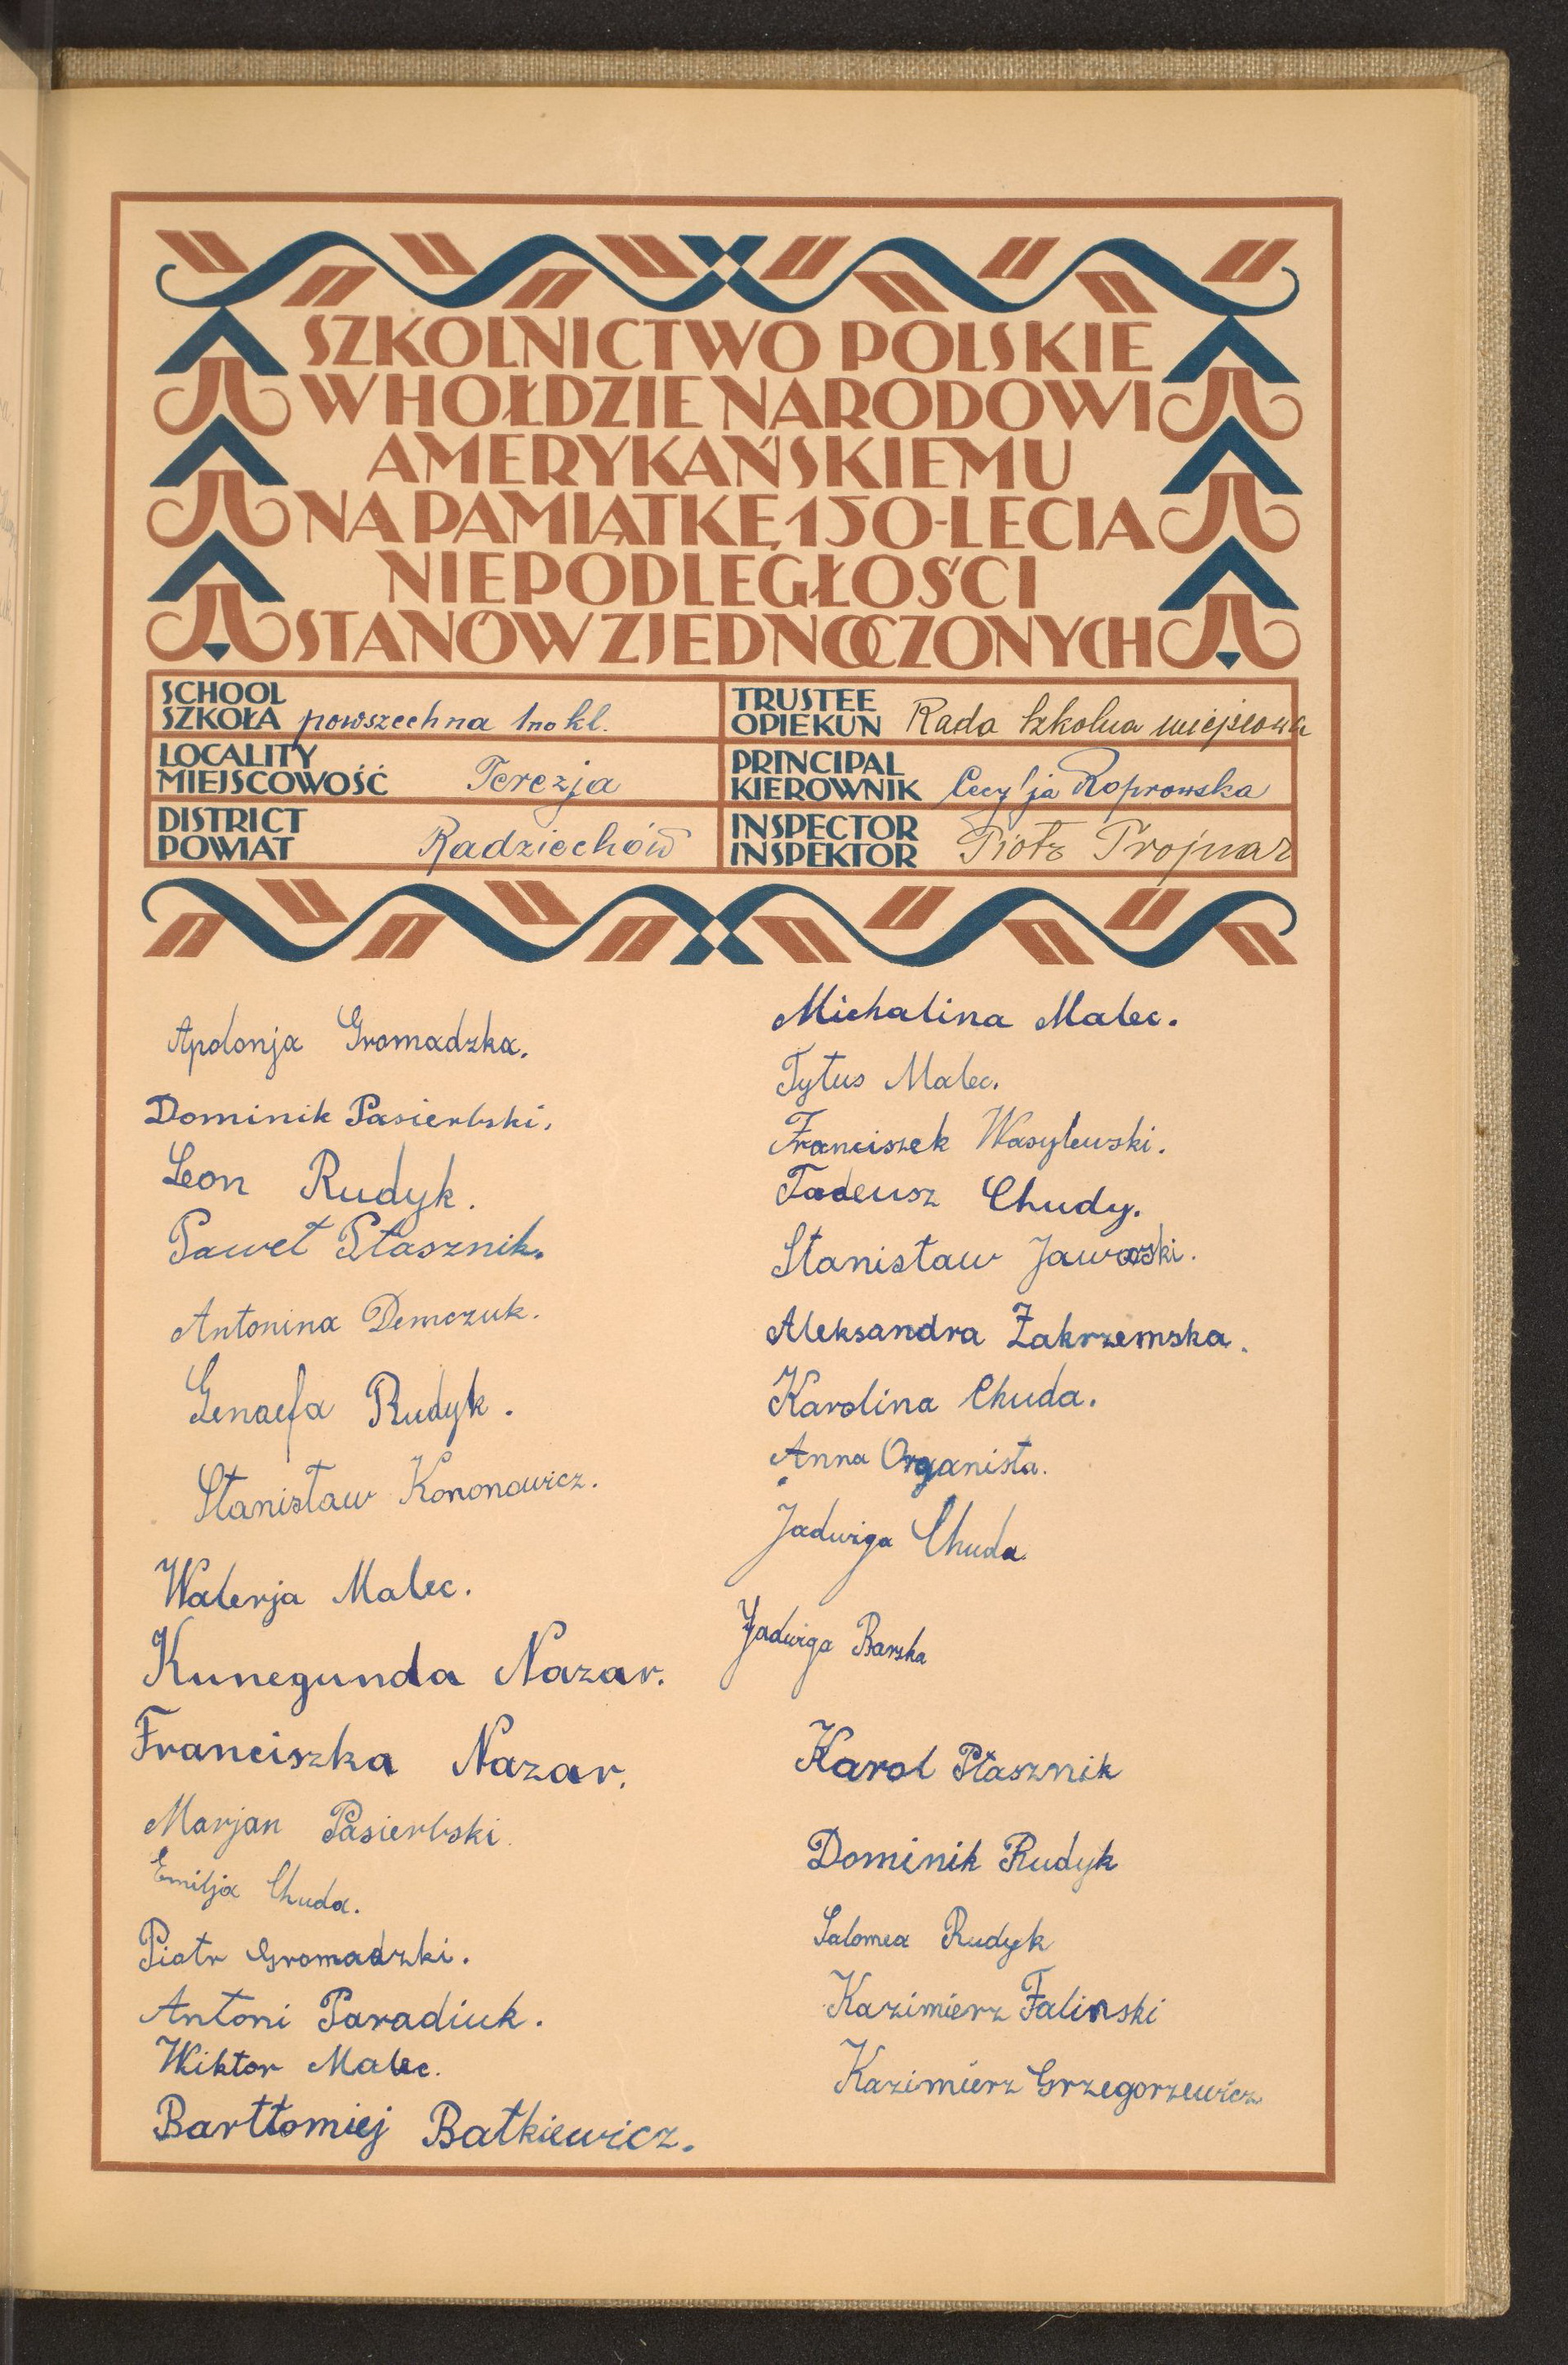 SZKOLNICTWO POLSKIE
W HOŁDZIE NARODOWI
AMERYKAŃSKIEMU
NA PAMIĄTKĘ 150-LECIA
NIEPODLEGŁOŚCI
STANÓW ZJEDNOCZONYCH
SCHOOL
SZKOŁA powszechna 1no kl.
LOCALITY
MIEJSCOWOŚĆ Terezja
DISTRICT
POWIAT Radziechów
TRUSTEE
OPIEKUN Rada Szkolna miejscowa
PRINCIPAL
KIEROWNIK Cecylja Koprowska
INSPECTOR
INSPEKTOR Piotr Trojnar
Apolonja Gromadzka.
Dominik Pasierbski.
Leon Rudyk.
Paweł Ptasznik.
Antonina Demczuk.
Genaefa Rudyk.
Stanisław Kononowicz.
Walerja Malec.
Kunegunda Nazar.
Franciszka Nazar.
Marjan Pasierbski.
Emilja Chuda.
Piotr Gromadzki.
Antoni Paradiuk.
Wiktor Malec.
Bartłomiej Batkiewicz.
Michalina Malec.
Tytus Malec.
Franciszek Wasylewski.
Tadeusz Chudy.
Stanisław Jaworski.
Aleksandra Zakrzemska.
Karolina Chuda.
Anna Organista.
Jadwiga Chuda
Jadwiga Barska
Karol Ptasznik
Dominik Rudyk
Salomea Rudyk
Kazimierz Falinski
Kazimierz Grzegorzewicz